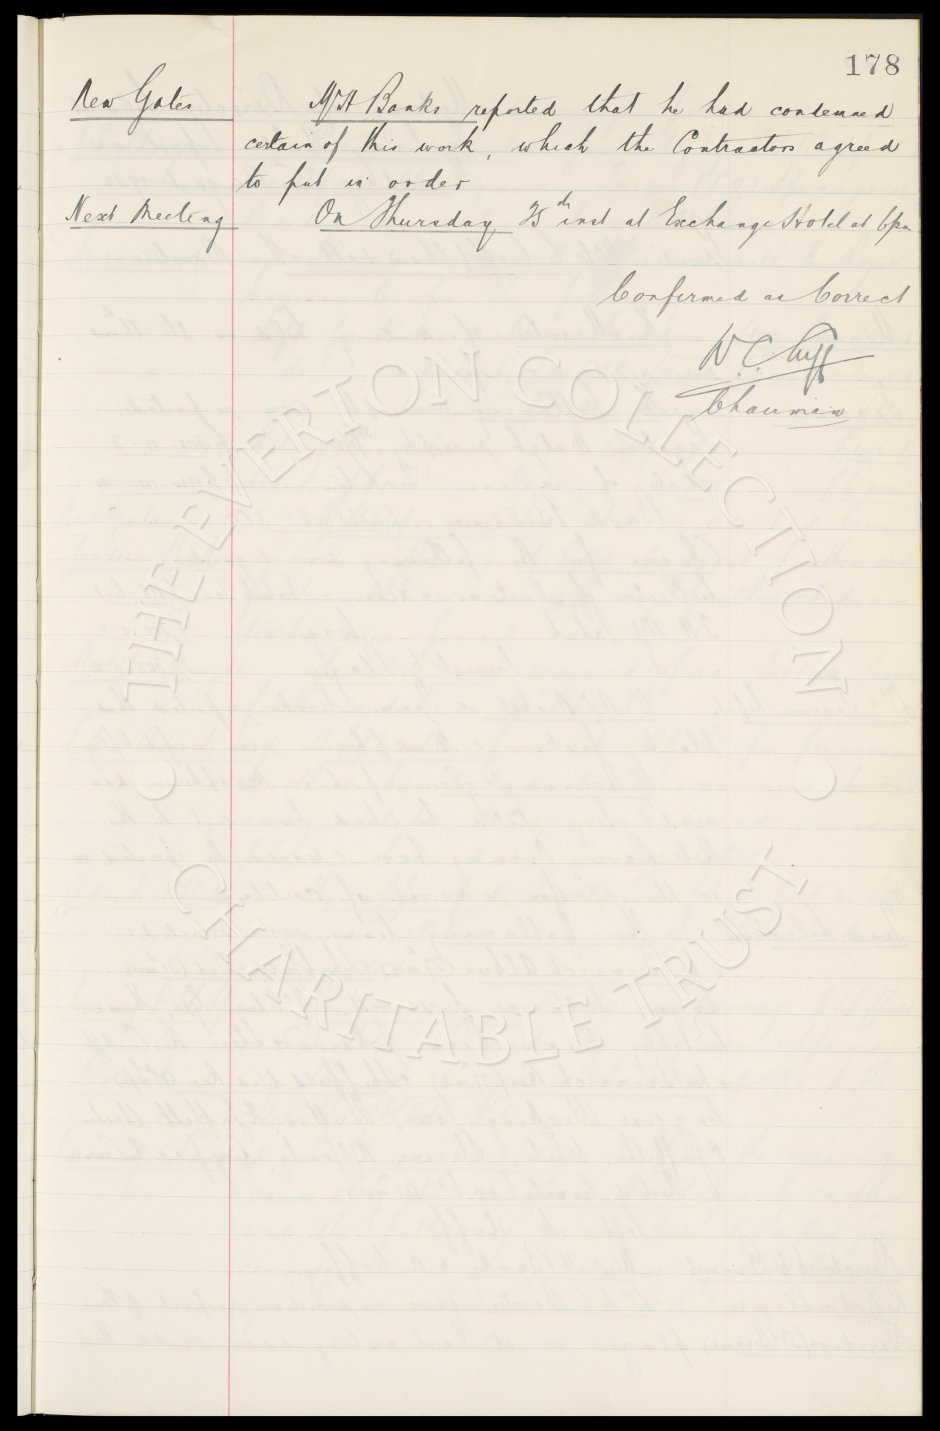 178
New Gates Mr H Banks reported that he had condemned
certain of this work, which the Contractors agreed
to put in order
Next Meeting On Thursday 25th inst at Exchange Hotel at 6pm
Confirmed as Correct
W. C. Cuff
Chairman
THE EVERTON COLLECTION
CHARITABLE TRUST